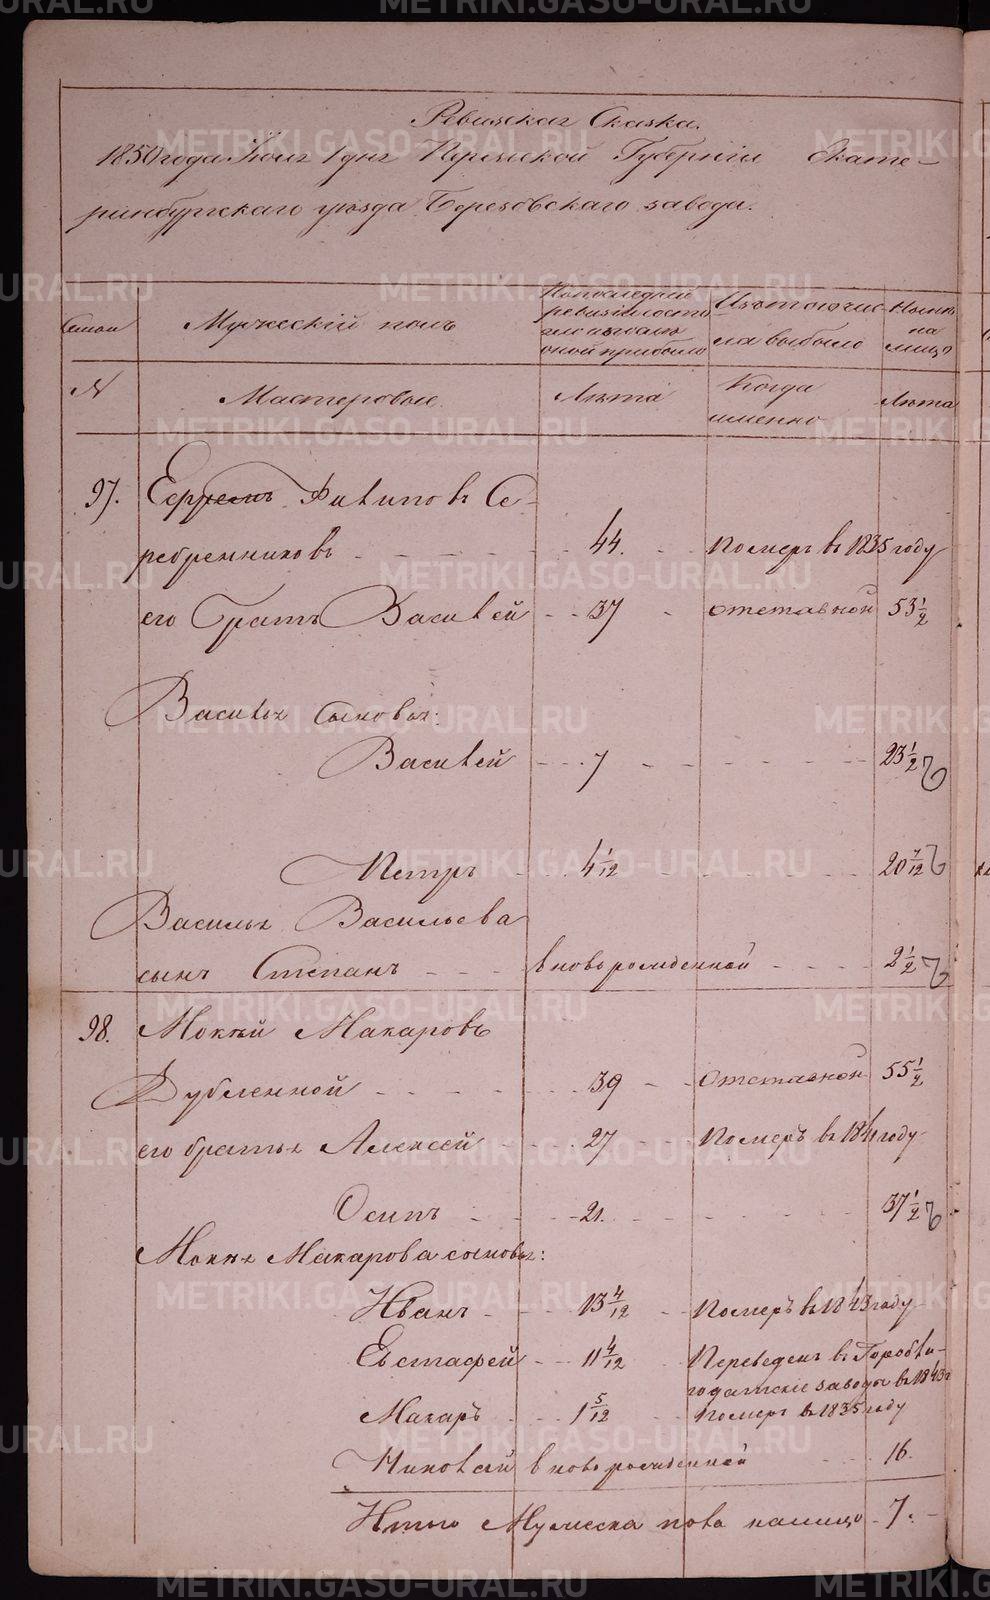 Ревизская Сказка.
1850 года Июня 1 дня Пермской Губерніи Екате-
ринбургскаго уѣзда Березовскаго завода.
Семьи
Мужескій полъ
По последней ревизіи
оной прибыло
Изъ того чис-
ла выбыло
Нынѣ на лицо
N
Мастеровые.
Лѣта
Когда именно
Лѣта
97. Ефремъ Филиповъ Се-
ребренниковъ 44. Померъ въ 1835 году
его братъ Василей 37 отставной 53 1/2
Василья сыновья:
Василей 7 23 1/2
Петръ 4 1/12 20 7/12
Василья Васильева
сынъ Степанъ вновь рожденной 2 1/2
98. Мокѣй Макаровъ
Дубленной 39 Отставной 55 1/2
его братья Алексей 27 Померъ въ 1841 году
Осипъ 21. 37 1/2
Мокѣя Макарова сыновья:
Иванъ 13 4/12 Померъ въ 1843 году
Евстафей 11 4/12 Переведенъ въ Гороблагодатскіе заводы въ 1843 г
Макаръ 1 5/12 Померъ въ 1835 году
Николай вновь рожденной 16.
Итого Мужеска пола налицо 7.
METRIKI.GASO-URAL.RU